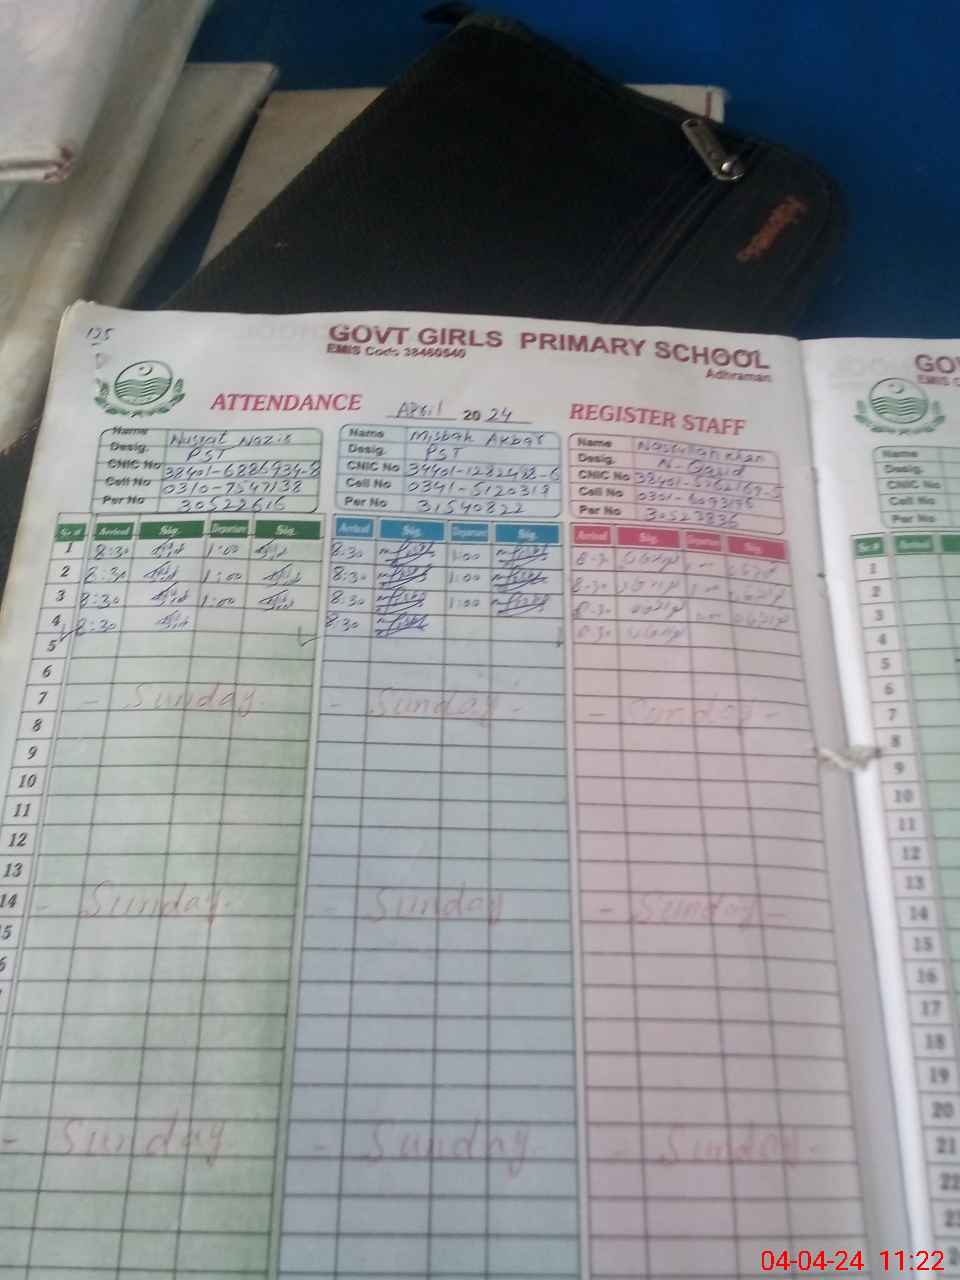 125
GOVT GIRLS PRIMARY SCHOOL
EMIS Code 38460540
Adhraman
ATTENDANCE April 2024 REGISTER STAFF
Name Nusrat Nazir
Desig. PST
CNIC No 38401-6286934-8
Cell No 0310-7547138
Per No 30522616
Name Misbah Akbar
Desig. PST
CNIC No 34401-1282488-6
Cell No 0341-5120319
Per No 31540822
Name Nasrullah Khan
Desig. N-Qasid
CNIC No
Cell No
Per No 30523836
Sr.# Arrival Sig. Departure Sig. Arrival Sig. Departure Sig. Arrival Sig. Departure Sig.
1 8:30 1:00 8:30 1:00
2 8:30 1:00 8:30 1:00 8:30
3 8:30 1:00 8:30 1:00 8:30
4 8:30 8:30 8:30
5
6
7 - Sunday - - Sunday - - Sunday -
8
9
10
11
12
13
14 - Sunday - - Sunday - Sunday -
- Sunday - Sunday - Sunday -
GOV
EMIS C
Name
Desig.
CNIC No
Cell No
Per No
Sr.#
1
2
3
4
5
6
7
8
9
10
11
12
13
14
15
16
17
18
19
20
21
22
04-04-24 11:22